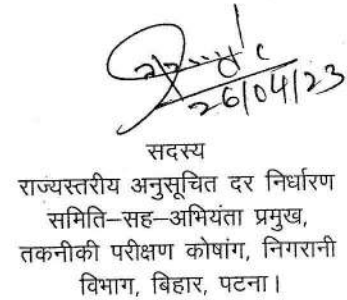 26/04/23
सदस्य
राज्यस्तरीय अनुसूचित दर निर्धारण
समिति–सह–अभियंता प्रमुख,
तकनीकी परीक्षण कोषांग, निगरानी
विभाग, बिहार, पटना।